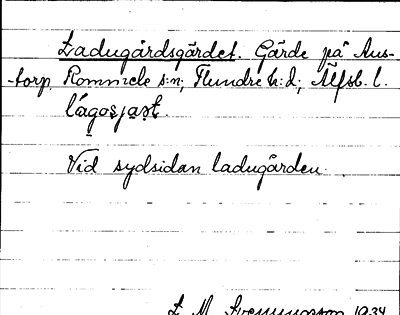 Ladugårdsgärdet. Gärde på Aus-
-torp, Rommele s:n; Flundre h:d; Älfsb. l.
lágosjaṣt.
Vid sydsidan ladugården.
L. M. Svenungsson 1934